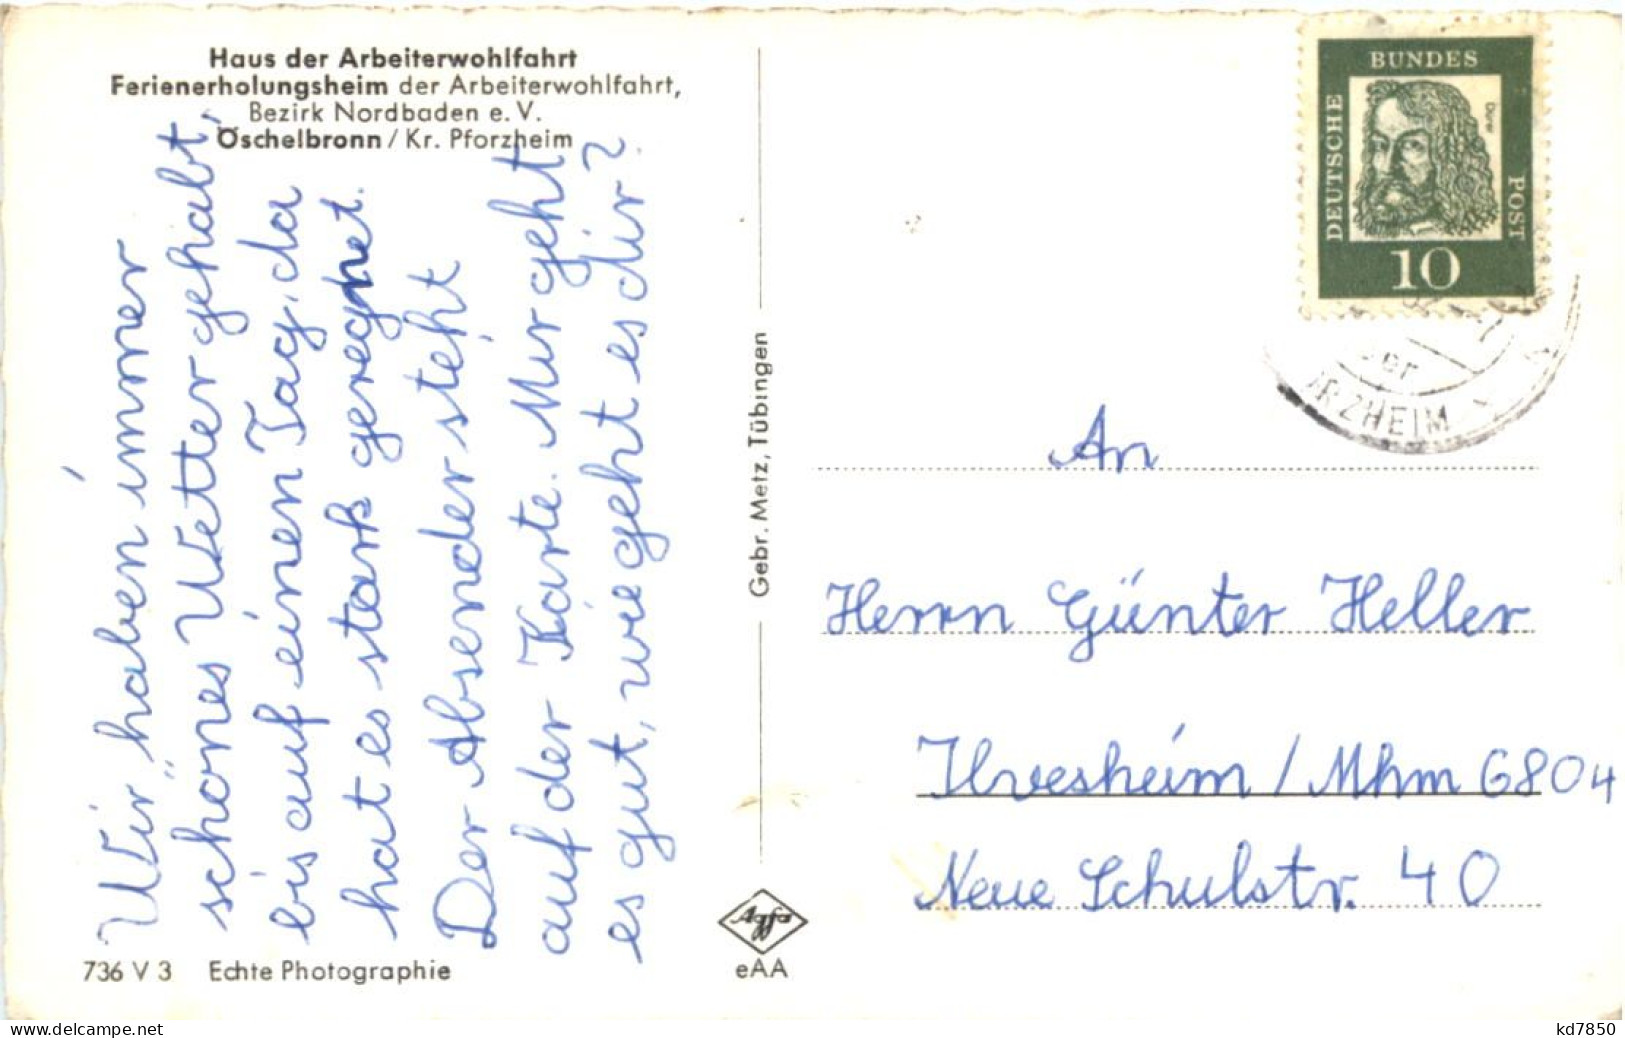 Haus der Arbeiterwohlfahrt
Ferienerholungsheim der Arbeiterwohlfahrt,
Bezirk Nordbaden e. V.
Öschelbronn / Kr. Pforzheim
Wir haben immer
schönes Wetter gehabt,
bis auf einen Tag, da
hat es stark geregnet.
Der Absender steht
auf der Karte. Mir geht
es gut, wie geht es dir?
736 V 3 Echte Photographie
Gebr. Metz, Tübingen
Agfa
eAA
BUNDES
DEUTSCHE
POST
Dürer
10
RZHEIM
An
Herrn Günter Heller
Ilvesheim / Mhm 6804
Neue Schulstr. 40
www.delcampe.net
kd7850